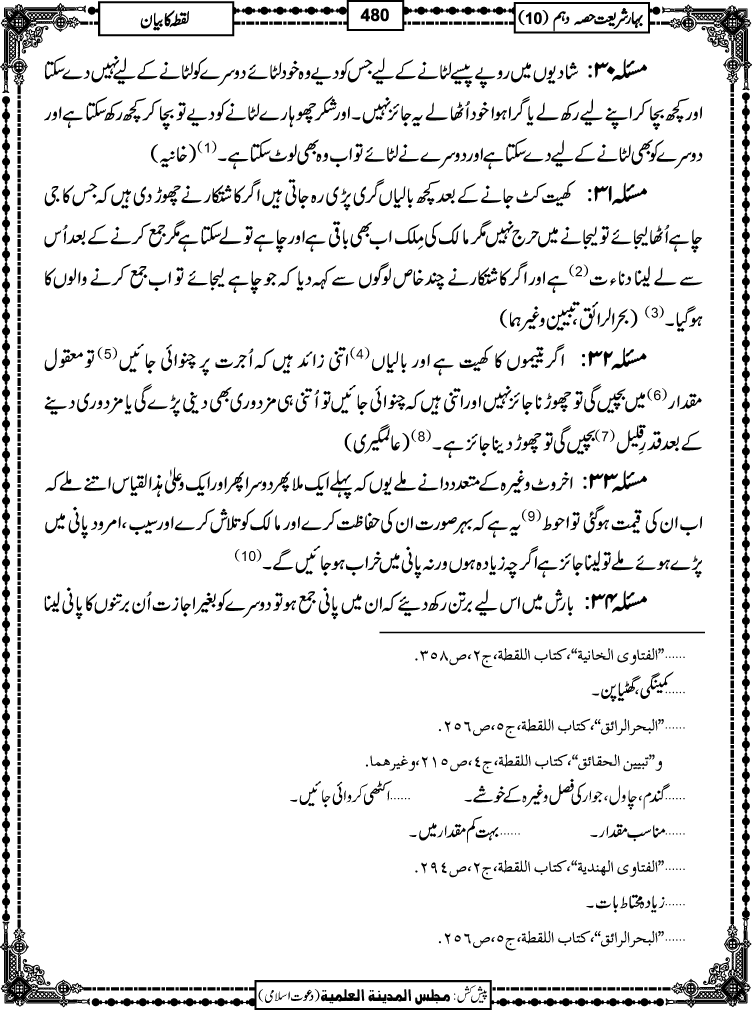 بہارشریعت حصہ دہم (10)
480
لقطہ کا بیان
مسئلہ ۳۰: شادیوں میں روپے پیسے لٹانے کے لیے جس کو دیے وہ خود لٹائے دوسرے کو لٹانے کے لیے نہیں دے سکتا
اور کچھ بچا کر اپنے لیے رکھ لے یا گرا ہوا خود اُٹھا لے یہ جائز نہیں۔ اور شکر چھوہارے لٹانے کو دیے تو بچا کر کچھ رکھ سکتا ہے اور
دوسرے کو بھی لٹانے کے لیے دے سکتا ہے اور دوسرے نے لٹائے تو اب وہ بھی لوٹ سکتا ہے۔(1) (خانیہ)
مسئلہ ۳۱: کھیت کٹ جانے کے بعد کچھ بالیاں گری پڑی رہ جاتی ہیں اگر کاشتکار نے چھوڑ دی ہیں کہ جس کا جی
چاہے اُٹھا لیجائے تو لیجانے میں حرج نہیں مگر مالک کی مِلک اب بھی باقی ہے اور چاہے تو لے سکتا ہے مگر جمع کرنے کے بعد اُس
سے لے لینا دناءت(2) ہے اور اگر کاشتکار نے چند خاص لوگوں سے کہہ دیا کہ جو چاہے لیجائے تو اب جمع کرنے والوں کا
ہوگیا۔(3) (بحرالرائق، تبیین وغیرہما)
مسئلہ ۳۲: اگر یتیموں کا کھیت ہے اور بالیاں(4) اتنی زائد ہیں کہ اُجرت پر چنوائی جائیں(5) تو معقول
مقدار(6) میں بچیں گی تو چھوڑنا جائز نہیں اور اتنی ہیں کہ چنوائی جائیں تو اُتنی ہی مزدوری بھی دینی پڑے گی یا مزدوری دینے
کے بعد قدرِ قلیل(7) بچیں گی تو چھوڑ دینا جائز ہے۔(8) (عالمگیری)
مسئلہ ۳۳: اخروٹ وغیرہ کے متعدد دانے ملے یوں کہ پہلے ایک ملا پھر دوسرا پھر اور ایک وعلیٰ ہذا القیاس اتنے ملے کہ
اب ان کی قیمت ہوگئی تو احوط(9) یہ ہے کہ بہر صورت ان کی حفاظت کرے اور مالک کو تلاش کرے اور سیب، امرود پانی میں
پڑے ہوئے ملے تو لینا جائز ہے اگرچہ زیادہ ہوں ورنہ پانی میں خراب ہوجائیں گے۔(10)
مسئلہ ۳۴: بارش میں اس لیے برتن رکھ دیئے کہ ان میں پانی جمع ہو تو دوسرے کو بغیر اجازت اُن برتنوں کا پانی لینا
......”الفتاوى الخانية“، كتاب اللقطة، ج٢، ص٣٥٨.
......کمینگی، گھٹیا پن۔
......”البحرالرائق“، كتاب اللقطة، ج٥، ص٢٥٦.
و”تبيين الحقائق“، كتاب اللقطة، ج٤، ص٢١٥، وغيرهما.
......گندم، چاول، جوار کی فصل وغیرہ کے خوشے۔ ......اکٹھی کروائی جائیں۔
......مناسب مقدار۔ ......بہت کم مقدار میں۔
......”الفتاوى الهندية“، كتاب اللقطة، ج٢، ص٢٩٤.
......زیادہ محتاط بات۔
......”البحرالرائق“، كتاب اللقطة، ج٥، ص٢٥٦.
پیش کش: مجلس المدينة العلمية (دعوت اسلامی)